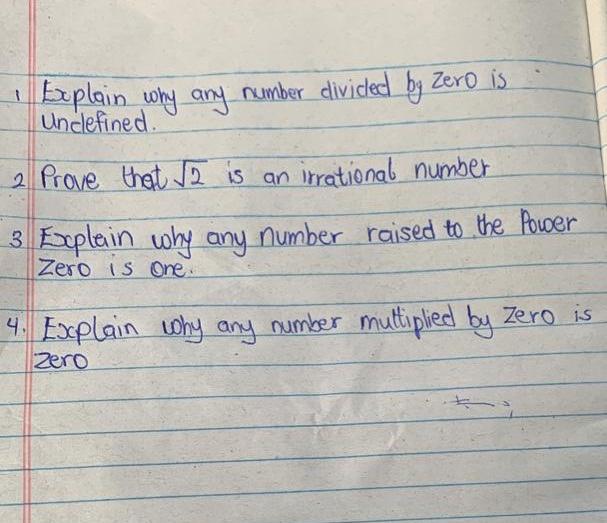 1 Explain why any number divided by Zero is
Undefined.
2 Prove that √2 is an irrational number
3 Explain why any number raised to the Power
Zero is One.
4. Explain why any number multiplied by Zero is
Zero